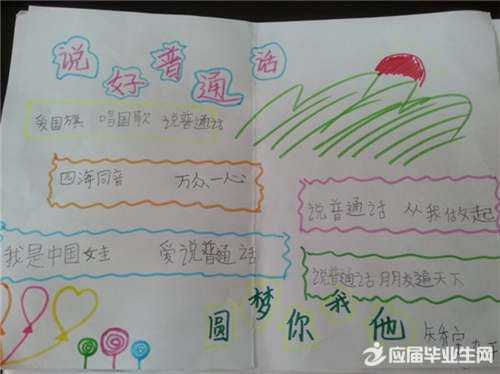 说好普通话
爱国旗 唱国歌 说普通话
四海同音 万众一心
说普通话 从我做起
我是中国女生 爱说普通话
说普通话 朋友遍天下
圆梦你我他
应届毕业生网